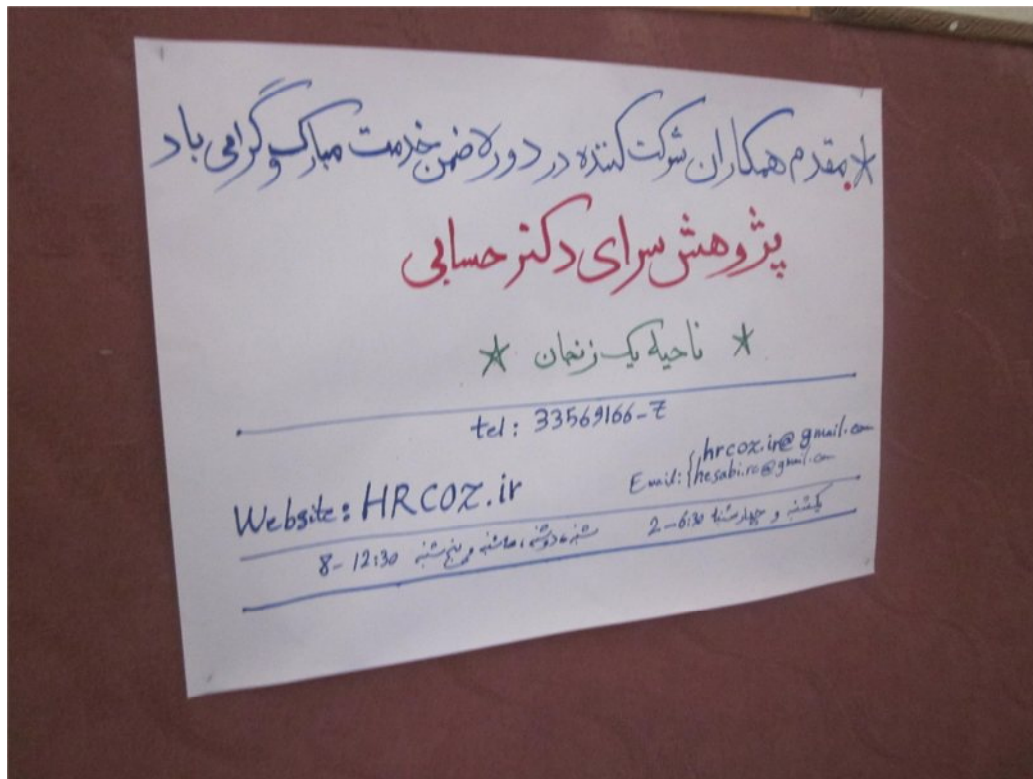 * مقدم همکاران شرکت کننده در دوره ضمن خدمت مبارک و گرامی باد
پژوهش سرای دکتر حسابی
* ناحیه یک زنجان *
tel: 33569166-7
Website: HRCOZ.ir
Email: { hrcoz.ir@gmail.com
hesabi.rc@gmail.com
یکشنبه و چهارشنبه 2-6:30
شنبه، دوشنبه، سه شنبه و پنج شنبه 8-12:30